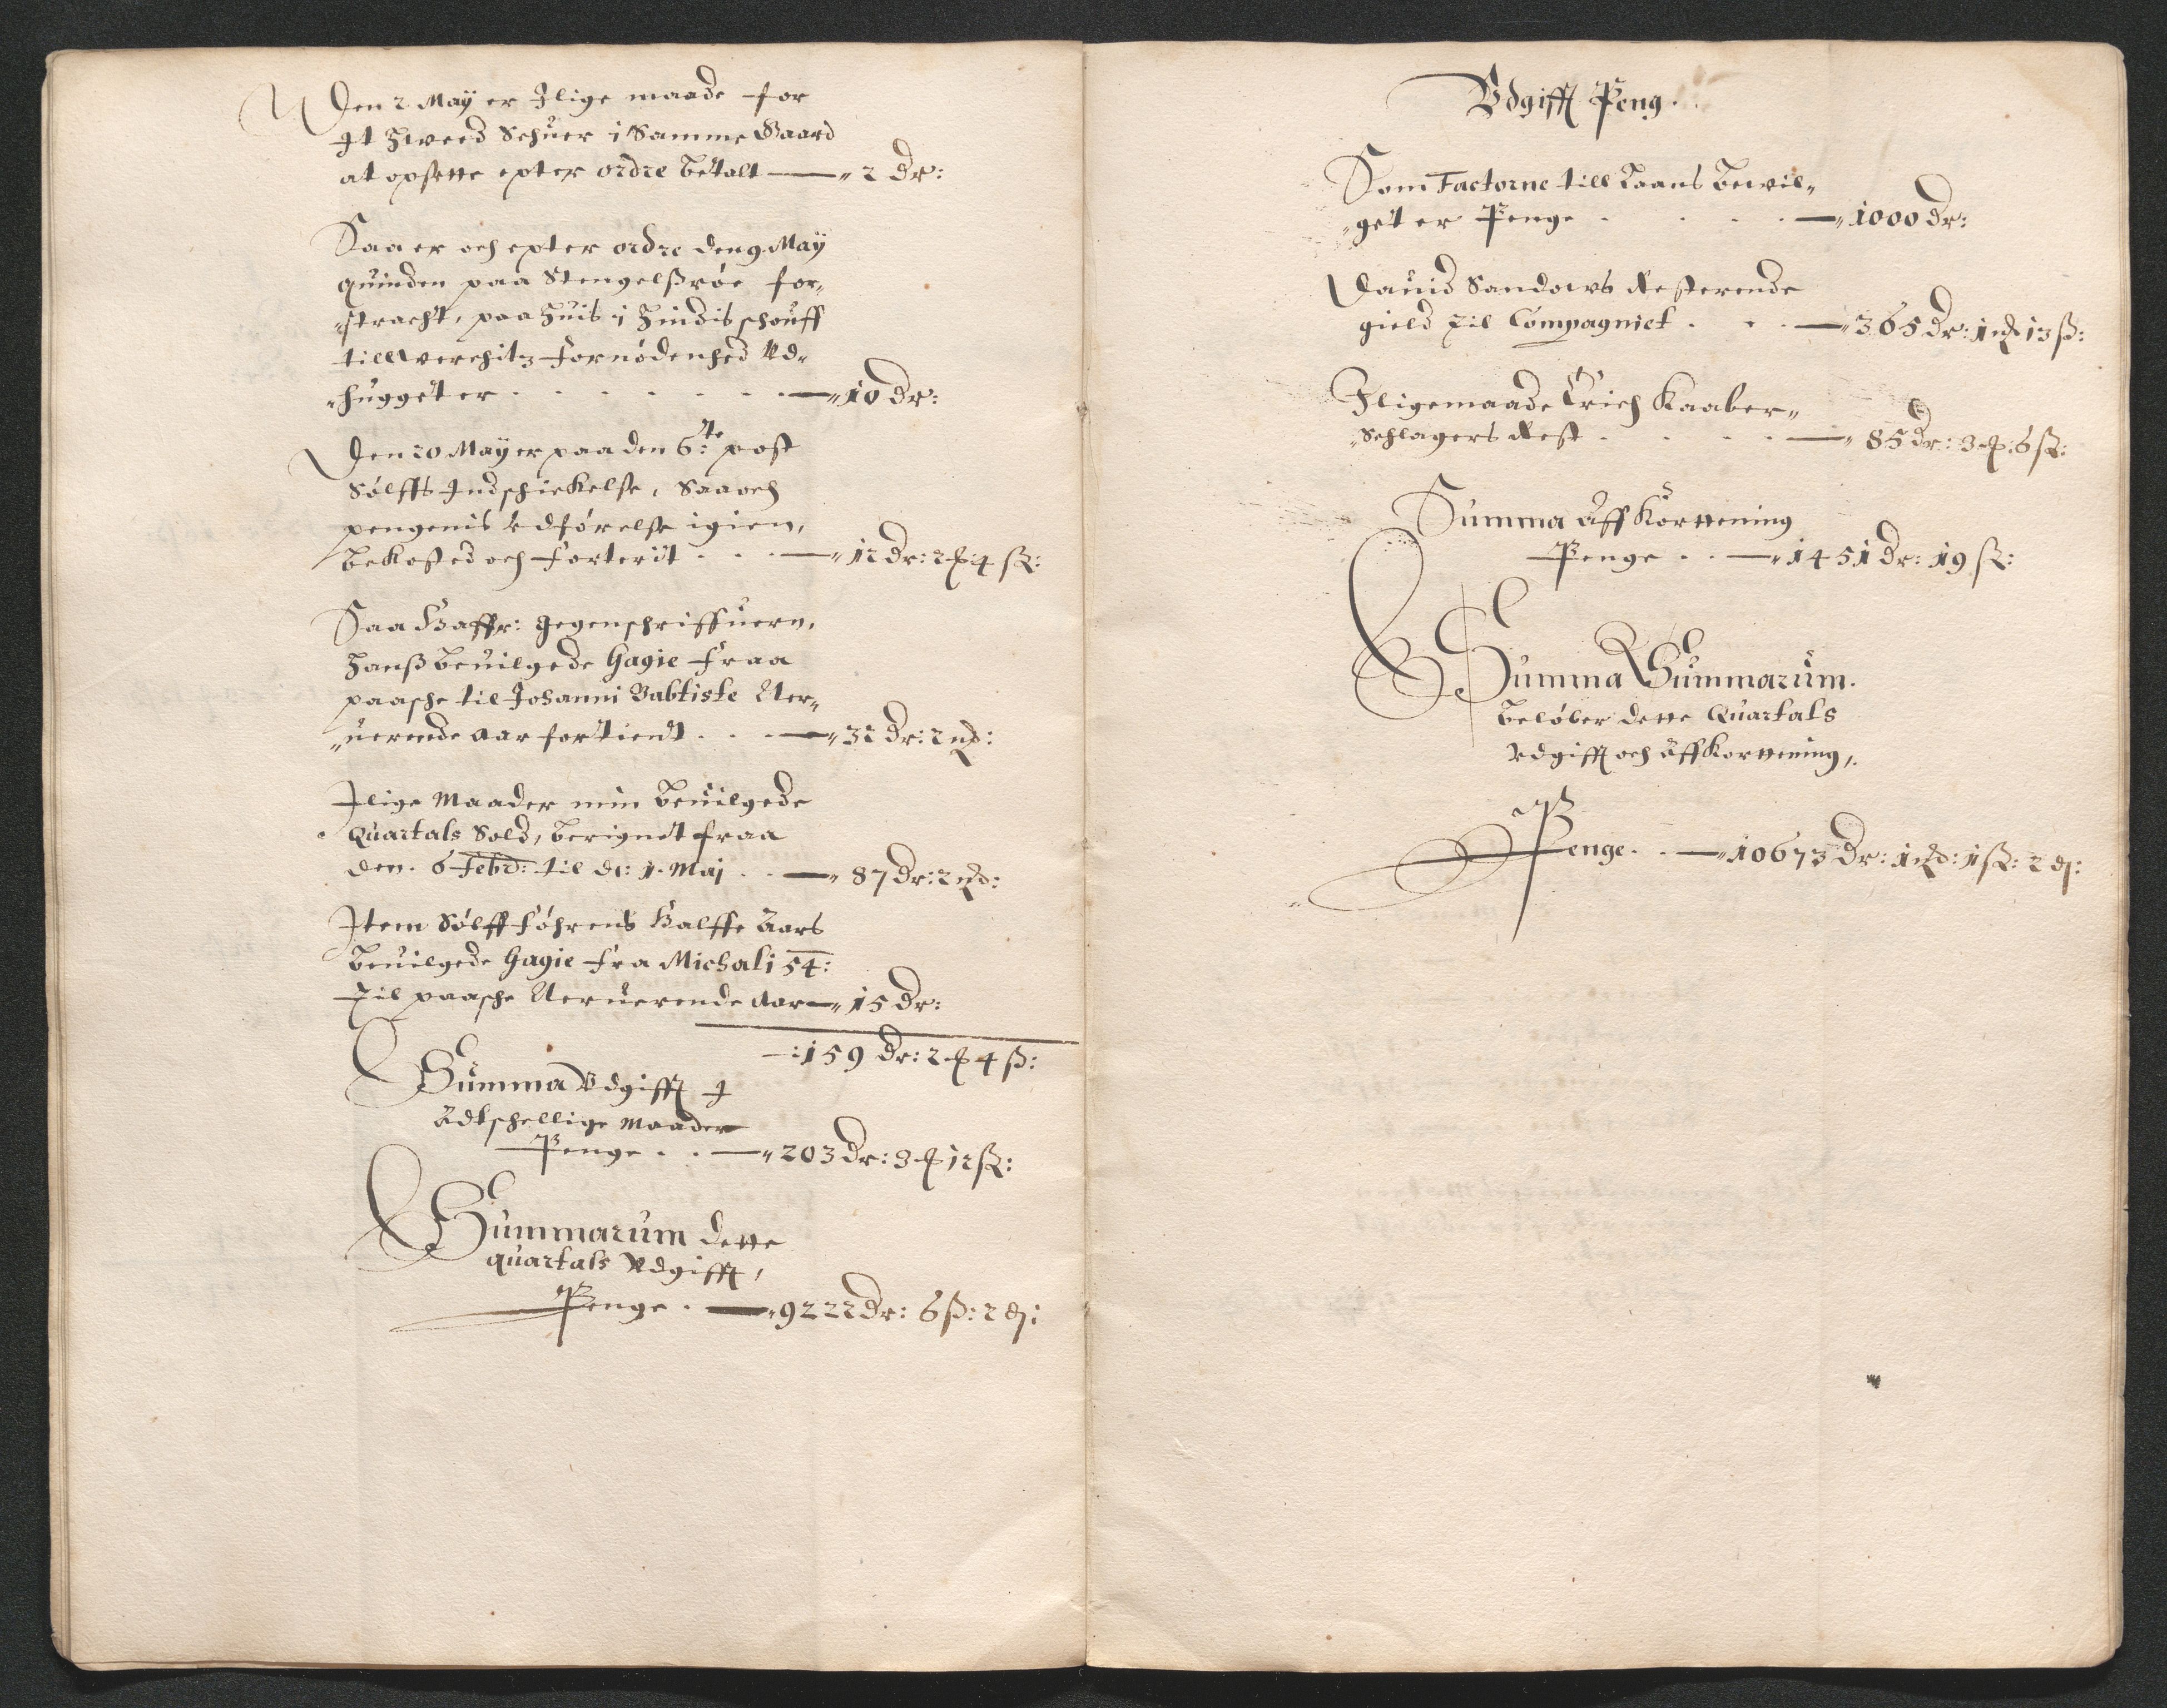 Den 2 Maÿ er Jlige maade for
Jt Hreed Schuer i Samme Gaard
at opsette epter ordre betalt — „ 2 Dr:
Saa er och epter ordre den 9 Maÿ
quinden paa Stengelßröe for„
„stracht, paa Huis i Hindis schouff
till werchitz fornödenhed Ud„
„hugget er . . . . . . — „ 10 Dr:
Den 20 Maÿ er paa den 6:te post
Sölffts Indschickelse, Saa och
pengenis Udförelse igien,
bekosted och forterit . . . — „ 12 Dr: 2 ß 4 ß:
Saa Haffr: gegenschriffuern,
Hanß beuilgede Gagie fraa
paasche til Johanni Babtiste Ner„
„uerende Aar fortient . . . — „ 32 Dr: 2 ꝶ:
Jlige Maader min beuilgede
Quartals Sold, berignet fraa
den. 6 Febr: til d: 1. Maj . . — „ 87 Dr: 2 ꝶ:
Jtem Sölff föhrens Halffe Aars
beuilgede Gagie fra Michali 54:
Til paasche Neruerende Aar — „ 15 Dr:
—: 159 Dr: 2 ꝶ 4 ß:
Summa Udgifft J
Adtschellige Maader
Penge . . — „ 203 Dr: 3 ꝶ 12 ß:
Summarum dette
quartals Udgifft,
Penge . — „ 9222 Dr: 6 ß: 2 ₰:
Udgifft Peng.
Som Factorne till Laans bewil„
„get er Penge . . . . — „ 1000 Dr:
Dauid Sandows Resterende
gield til Compagniet . . . — „ 365 Dr: 1 ꝶ 13 ß:
Jligemaade Erich Kaaber„
„Schlagers Rest . . . . — „ 85 Dr: 3 ꝶ: 6 ß:
Summa Aff Kortening
Penge . . — „ 1451 Dr: 19 ß:
Summa Summarum.
belöber dette Quartals
Udgifft och Aff Kortening,.
Penge . . — „ 10673 Dr: 1 ꝶ: 1 ß: 2 ₰: